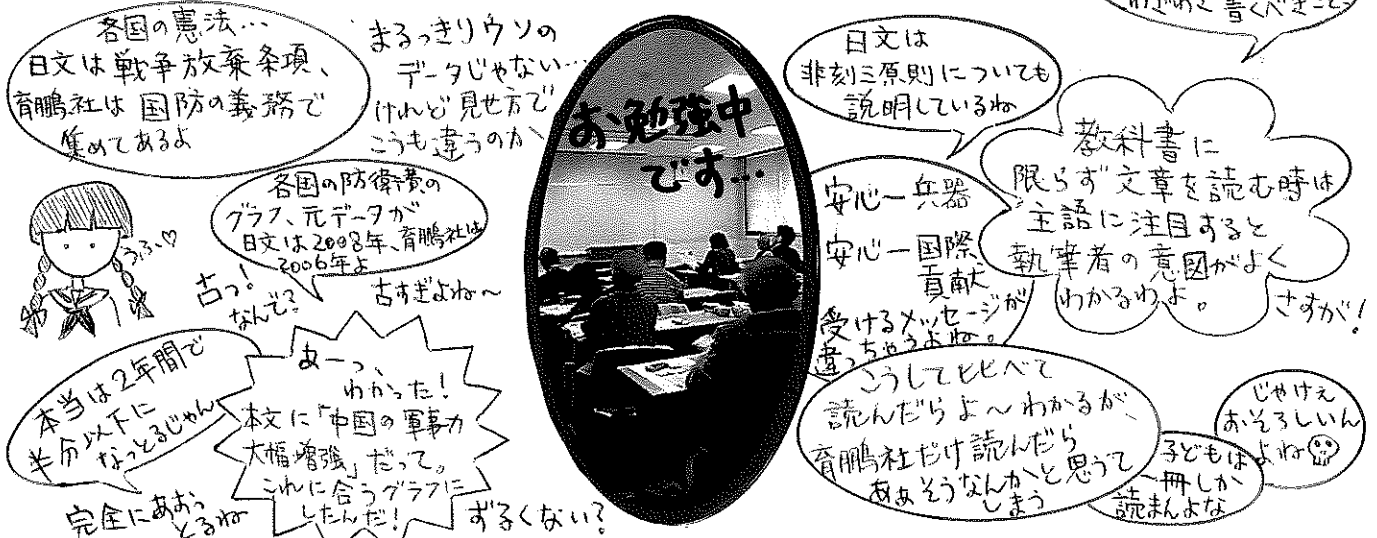 各国の憲法…
日文は戦争放棄条項、
育鵬社は国防の義務で
集めてあるよ
まるっきりウソの
データじゃない…
けれど見せ方で
こうも違うのか、
各国の防衛費の
グラフ、元データが
日文は2008年、育鵬社は
2006年よ
うふふ♡
古っ!
なんで?
古すぎよね〜
本当は2年間で
半分以下に
なっとるじゃん
あーっ、
わかった!
本文に「中国の軍事力
大幅増強」だって。
これに合うグラフに
したんだ!
完全にあおっ
とるね
ずるくない?
お勉強中
です…
書くべきこと
日文は
非刻三原則についても
説明しているね
安心ー兵器
安心ー国際
貢献
受けるメッセージが
違っちゃうよね。
教科書に
限らず文章を読む時は
主語に注目すると
執筆者の意図がよく
わかるわよ。
さすが!
こうしてヒヒべて
読んだらよ〜わかるが、
育鵬社だけ読んだら
ああそうなんかと思うて
しまう
子どもは
一冊しか
読まんよな
じゃけぇ
おそろしいん
よね